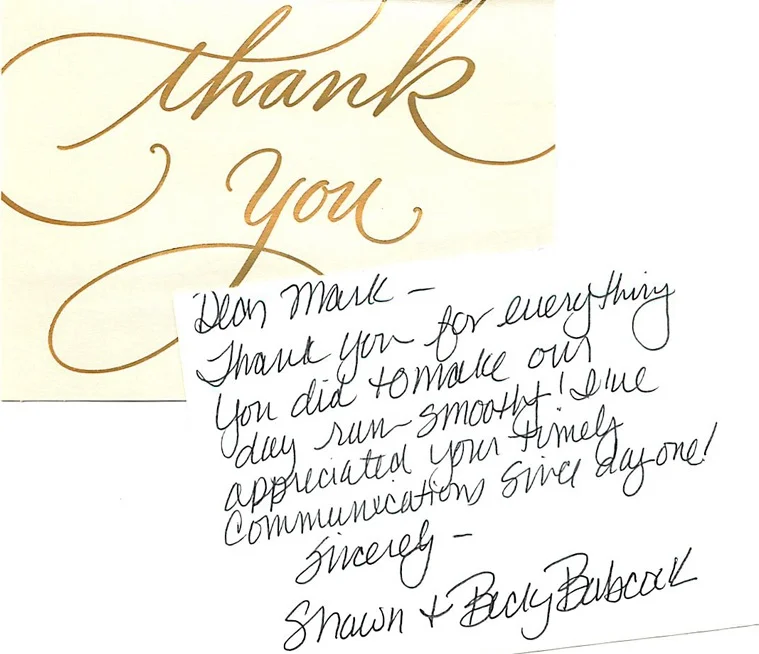 thank
you
Dear Mark –
Thank you for everything
you did to make our
day run smooth! I've
appreciated your timely
Communications since day one!
Sincerely –
Shawn + Becky Babcock